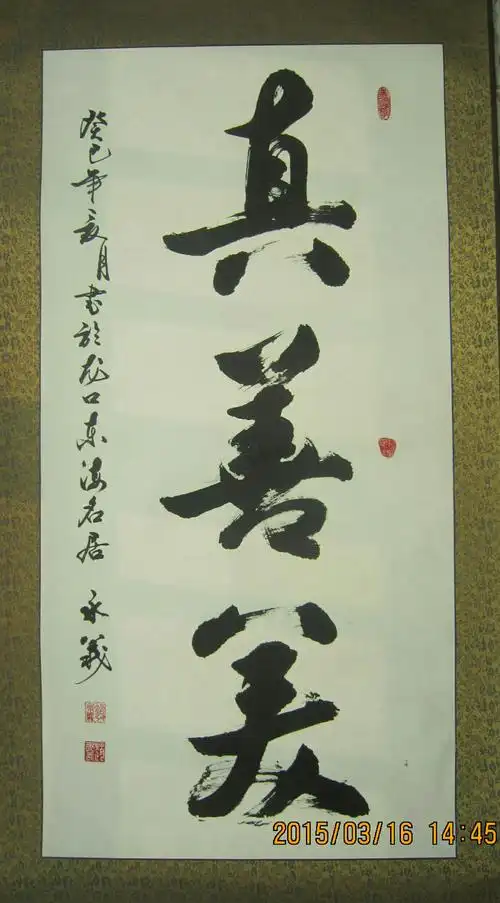 真善美
癸巳年亥月书於龙口东海名居 永义
2015/03/16 14:45